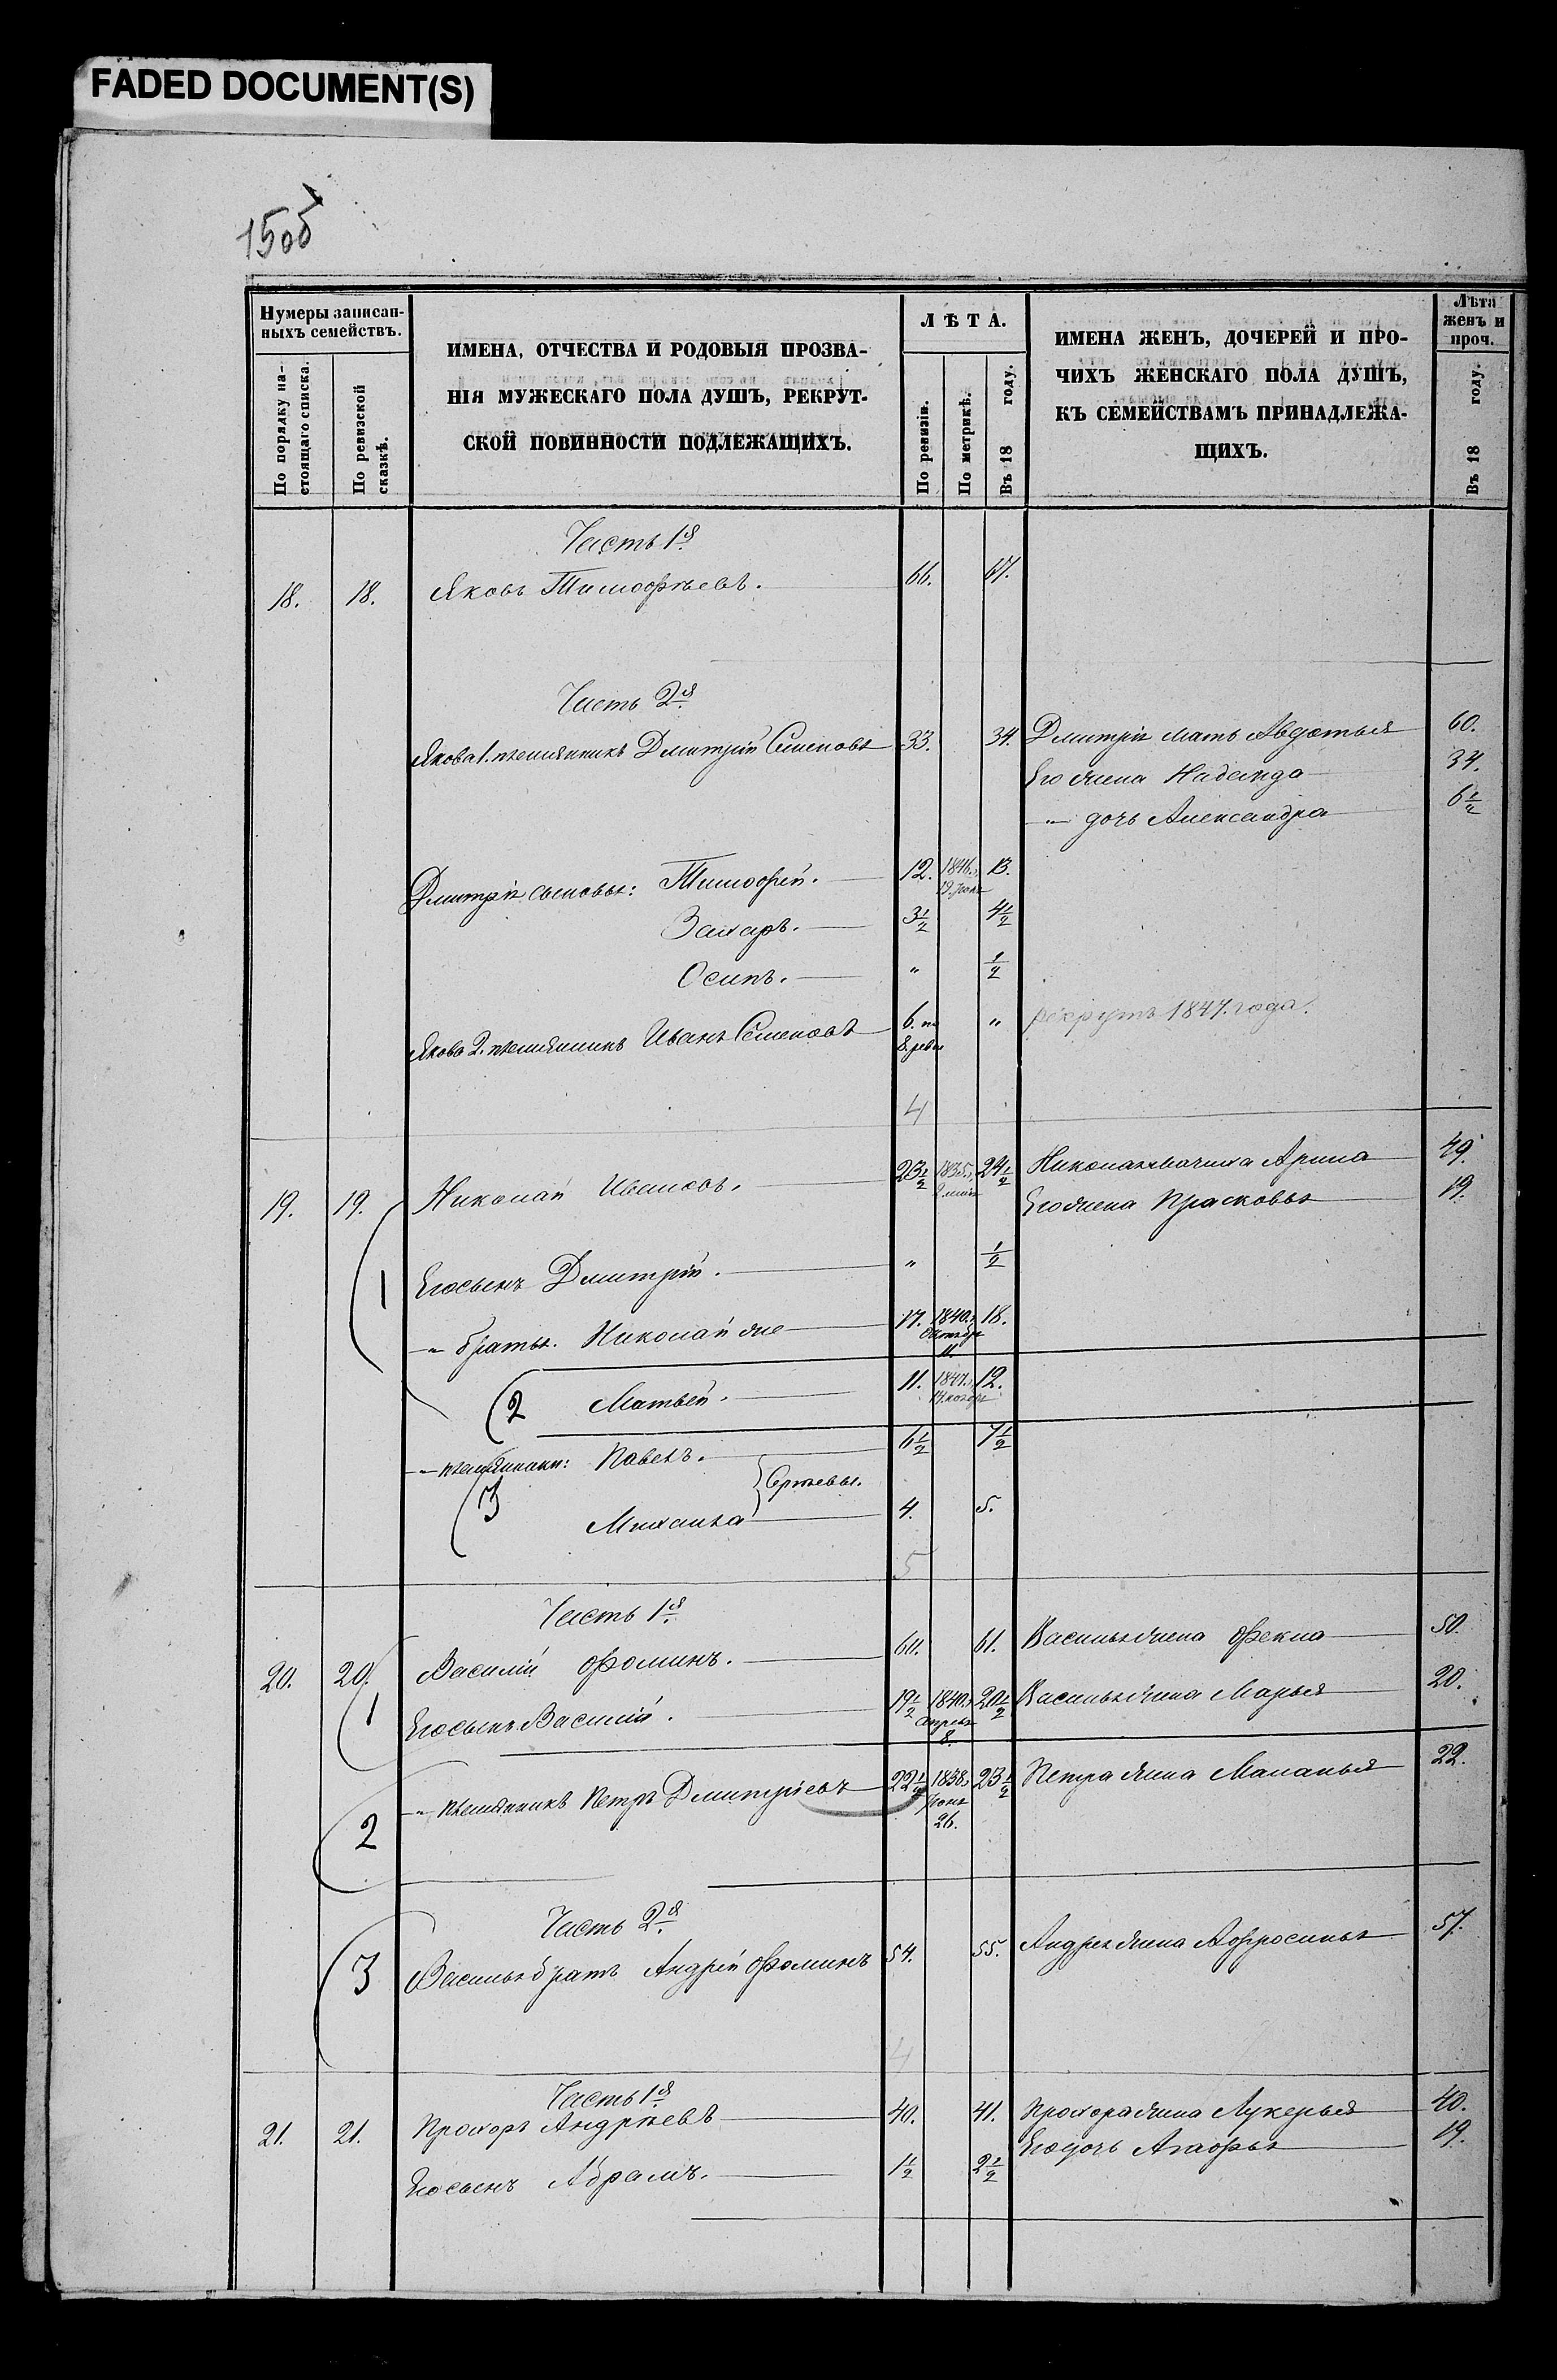 FADED DOCUMENT(S)
15об
Нумеры записан-
ныхъ семействъ.
По порядку на-
стоящаго списка.
По ревизской
сказкѣ.
ИМЕНА, ОТЧЕСТВА И РОДОВЫЯ ПРОЗВА-
НІЯ МУЖЕСКАГО ПОЛА ДУШЪ, РЕКРУТ-
СКОЙ ПОВИННОСТИ ПОДЛЕЖАЩИХЪ.
ЛѢТА.
По ревизіи.
По метрикѣ.
Въ 18 году.
ИМЕНА ЖЕНЪ, ДОЧЕРЕЙ И ПРО-
ЧИХЪ ЖЕНСКАГО ПОЛА ДУШЪ,
КЪ СЕМЕЙСТВАМЪ ПРИНАДЛЕЖА-
ЩИХЪ.
Лѣта
женъ и
проч.
Въ 18 году.
Часть 1я
18. 18. Яковъ Тимофѣевъ. 66. 67.
Часть 2я
Якова 1. племянникъ Дмитрій Семеновъ 33. 34. Дмитрія мать Авдотья 60.
Его жена Надежда 34.
" дочь Александра 6½
Дмитрія сыновья: Тимофей. 12. 1846., 13.
19. іюня
Захаръ. 3½ 4½
Осипъ. " ½
Якова 2. племянникъ Иванъ Семеновъ 6. по " рекрутъ 1847. года.
8. реви
4
19. 19. Николай Ивановъ. 23½ 1835., 24½ Николая мачиха Арина 49.
2 мая
Его жена Прасковья 19.
1 Его сынъ Дмитрій. " ½
" братья. Николай же 17. 1840., 18.
Октябр
11.
2 Матвѣй. 11. 1847., 12.
14. ноябр
" племянники: Павелъ. 6½ 7½
Сергѣевы.
3 Михаила 4. 5.
5
Часть 1я
20. 20. Василій Фоминъ. 60. 61. Василья жена Фекла 50.
1 Его сынъ Василій. 19½ 1840., 20½ Василья жена Марья 20.
апрѣля
8.
2 " племянникъ Петръ Дмитріевъ 22½ 1838., 23½ Петра жена Маланья 22.
Іюня
26.
Часть 2я
3 Василья братъ Андрей Фоминъ 54. 55. Андрея жена Афросинья 57.
4
Часть 1я
21. 21. Прохоръ Андрѣевъ 40. 41. Прохора жена Лукерья 40.
Его дочь Агафья 19.
Его сынъ Абрамъ. 1½ 2½